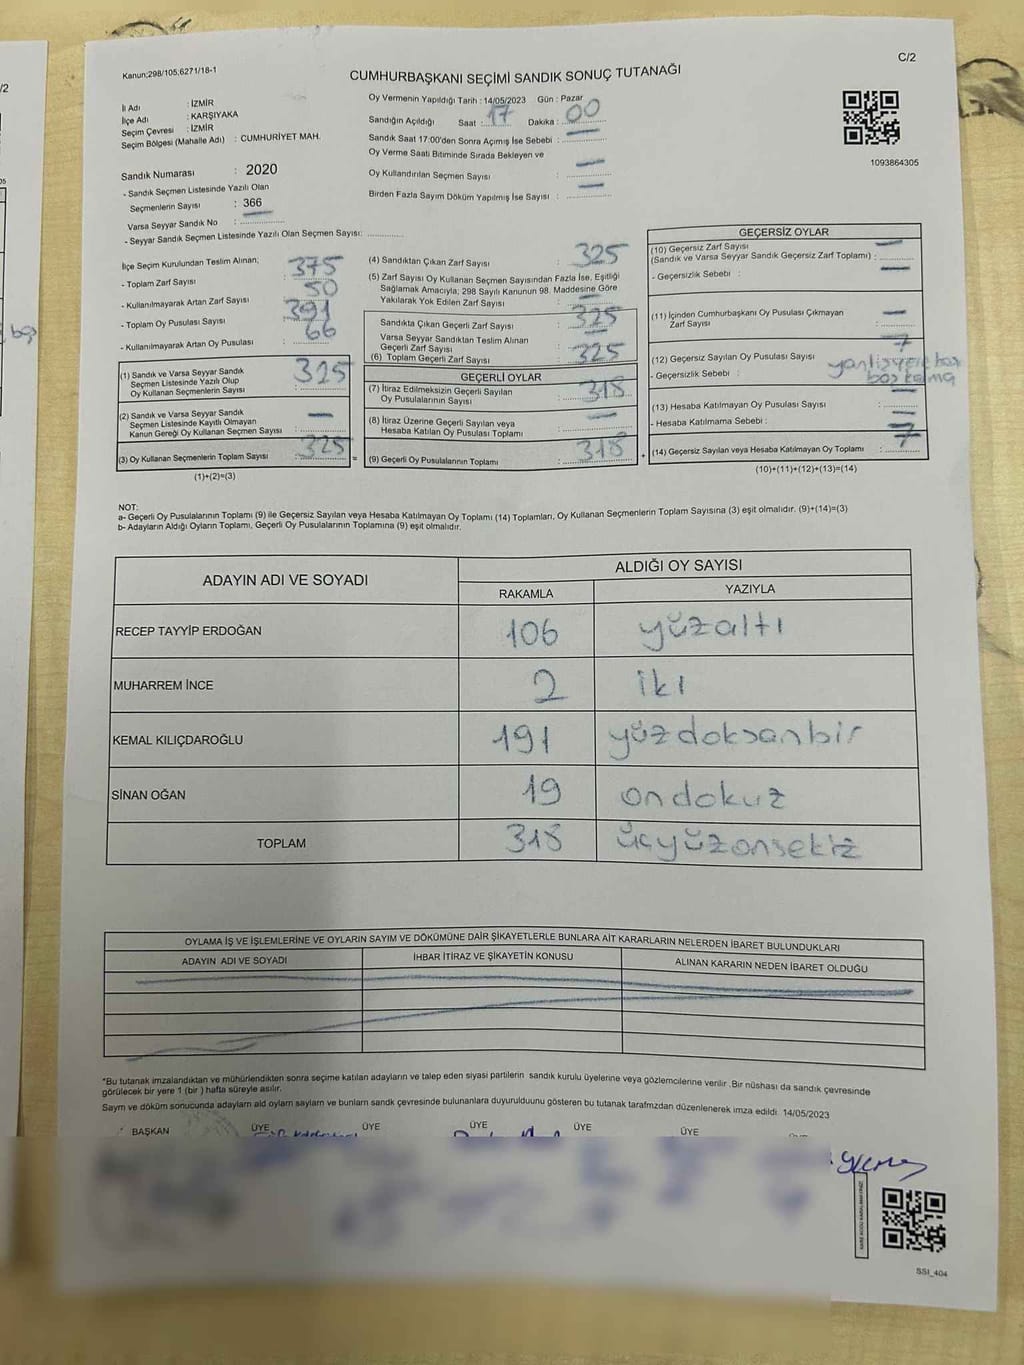 C/2
Kanun;298/105;6271/18-1
CUMHURBAŞKANI SEÇİMİ SANDIK SONUÇ TUTANAĞI
İl Adı : İZMİR
İlçe Adı : KARŞIYAKA
Seçim Çevresi : İZMİR
Seçim Bölgesi (Mahalle Adı) : CUMHURİYET MAH.
Oy Vermenin Yapıldığı Tarih : 14/05/2023 Gün : Pazar
Sandığın Açıldığı Saat : 17 Dakika : 00
Sandık Saat 17:00'den Sonra Açımış İse Sebebi : —
Oy Verme Saati Bitiminde Sırada Bekleyen ve
Oy Kullandırılan Seçmen Sayısı : —
Birden Fazla Sayım Döküm Yapılmış İse Sayısı : —
1093864305
Sandık Numarası : 2020
- Sandık Seçmen Listesinde Yazılı Olan
Seçmenlerin Sayısı : 366
Varsa Seyyar Sandık No : —
- Seyyar Sandık Seçmen Listesinde Yazılı Olan Seçmen Sayısı:
İlçe Seçim Kurulundan Teslim Alınan;
- Toplam Zarf Sayısı 375
- Kullanılmayarak Artan Zarf Sayısı 50
- Toplam Oy Pusulası Sayısı 391
- Kullanılmayarak Artan Oy Pusulası 66
(1) Sandık ve Varsa Seyyar Sandık
Seçmen Listesinde Yazılı Olup
Oy Kullanan Seçmenlerin Sayısı : 325
(2) Sandık ve Varsa Seyyar Sandık
Seçmen Listesinde Kayıtlı Olmayan
Kanun Gereği Oy Kullanan Seçmen Sayısı : —
(3) Oy Kullanan Seçmenlerin Toplam Sayısı : 325 =
(1)+(2)=(3)
(4) Sandıktan Çıkan Zarf Sayısı : 325
(5) Zarf Sayısı Oy Kullanan Seçmen Sayısından Fazla İse, Eşitliği
Sağlamak Amacıyla; 298 Sayılı Kanunun 98. Maddesine Göre
Yakılarak Yok Edilen Zarf Sayısı : —
Sandıkta Çıkan Geçerli Zarf Sayısı : 325
Varsa Seyyar Sandıktan Teslim Alınan
Geçerli Zarf Sayısı : —
(6) Toplam Geçerli Zarf Sayısı : 325
GEÇERLİ OYLAR
(7) İtiraz Edilmeksizin Geçerli Sayılan
Oy Pusulalarının Sayısı : 318
(8) İtiraz Üzerine Geçerli Sayılan veya
Hesaba Katılan Oy Pusulası Toplamı : —
(9) Geçerli Oy Pusulalarının Toplamı : 318 +
GEÇERSİZ OYLAR
(10) Geçersiz Zarf Sayısı —
(Sandık ve Varsa Seyyar Sandık Geçersiz Zarf Toplamı) :
- Geçersizlik Sebebi : —
(11) İçinden Cumhurbaşkanı Oy Pusulası Çıkmayan
Zarf Sayısı : —
(12) Geçersiz Sayılan Oy Pusulası Sayısı : 7
- Geçersizlik Sebebi : yanlış yere
(13) Hesaba Katılmayan Oy Pusulası Sayısı : —
- Hesaba Katılmama Sebebi : —
(14) Geçersiz Sayılan veya Hesaba Katılmayan Oy Toplamı : 7
(10)+(11)+(12)+(13)=(14)
NOT:
a- Geçerli Oy Pusulalarının Toplamı (9) ile Geçersiz Sayılan veya Hesaba Katılmayan Oy Toplamı (14) Toplamları, Oy Kullanan Seçmenlerin Toplam Sayısına (3) eşit olmalıdır. (9)+(14)=(3)
b- Adayların Aldığı Oyların Toplamı, Geçerli Oy Pusulalarının Toplamına (9) eşit olmalıdır.
ADAYIN ADI VE SOYADI
ALDIĞI OY SAYISI
RAKAMLA YAZIYLA
RECEP TAYYİP ERDOĞAN 106 yüzaltı
MUHARREM İNCE 2 iki
KEMAL KILIÇDAROĞLU 191 yüzdoksanbir
SİNAN OĞAN 19 ondokuz
TOPLAM 318 üçyüzonsekiz
OYLAMA İŞ VE İŞLEMLERİNE VE OYLARIN SAYIM VE DÖKÜMÜNE DAİR ŞİKAYETLERLE BUNLARA AİT KARARLARIN NELERDEN İBARET BULUNDUKLARI
ADAYIN ADI VE SOYADI İHBAR İTİRAZ VE ŞİKAYETİN KONUSU ALINAN KARARIN NEDEN İBARET OLDUĞU
*Bu tutanak imzalandıktan ve mühürlendikten sonra seçime katılan adayların ve talep eden siyasi partilerin sandık kurulu üyelerine veya gözlemcilerine verilir .Bir nüshası da sandık çevresinde
görülecek bir yere 1 (bir ) hafta süreyle asılır.
Sayım ve döküm sonucunda adayların aldı oyların sayıları ve bunların sandık çevresinde bulunanlara duyurulduunu gösteren bu tutanak tarafımızdan düzenlenerek imza edildi. 14/05/2023
BAŞKAN ÜYE ÜYE ÜYE ÜYE ÜYE
SSI_404